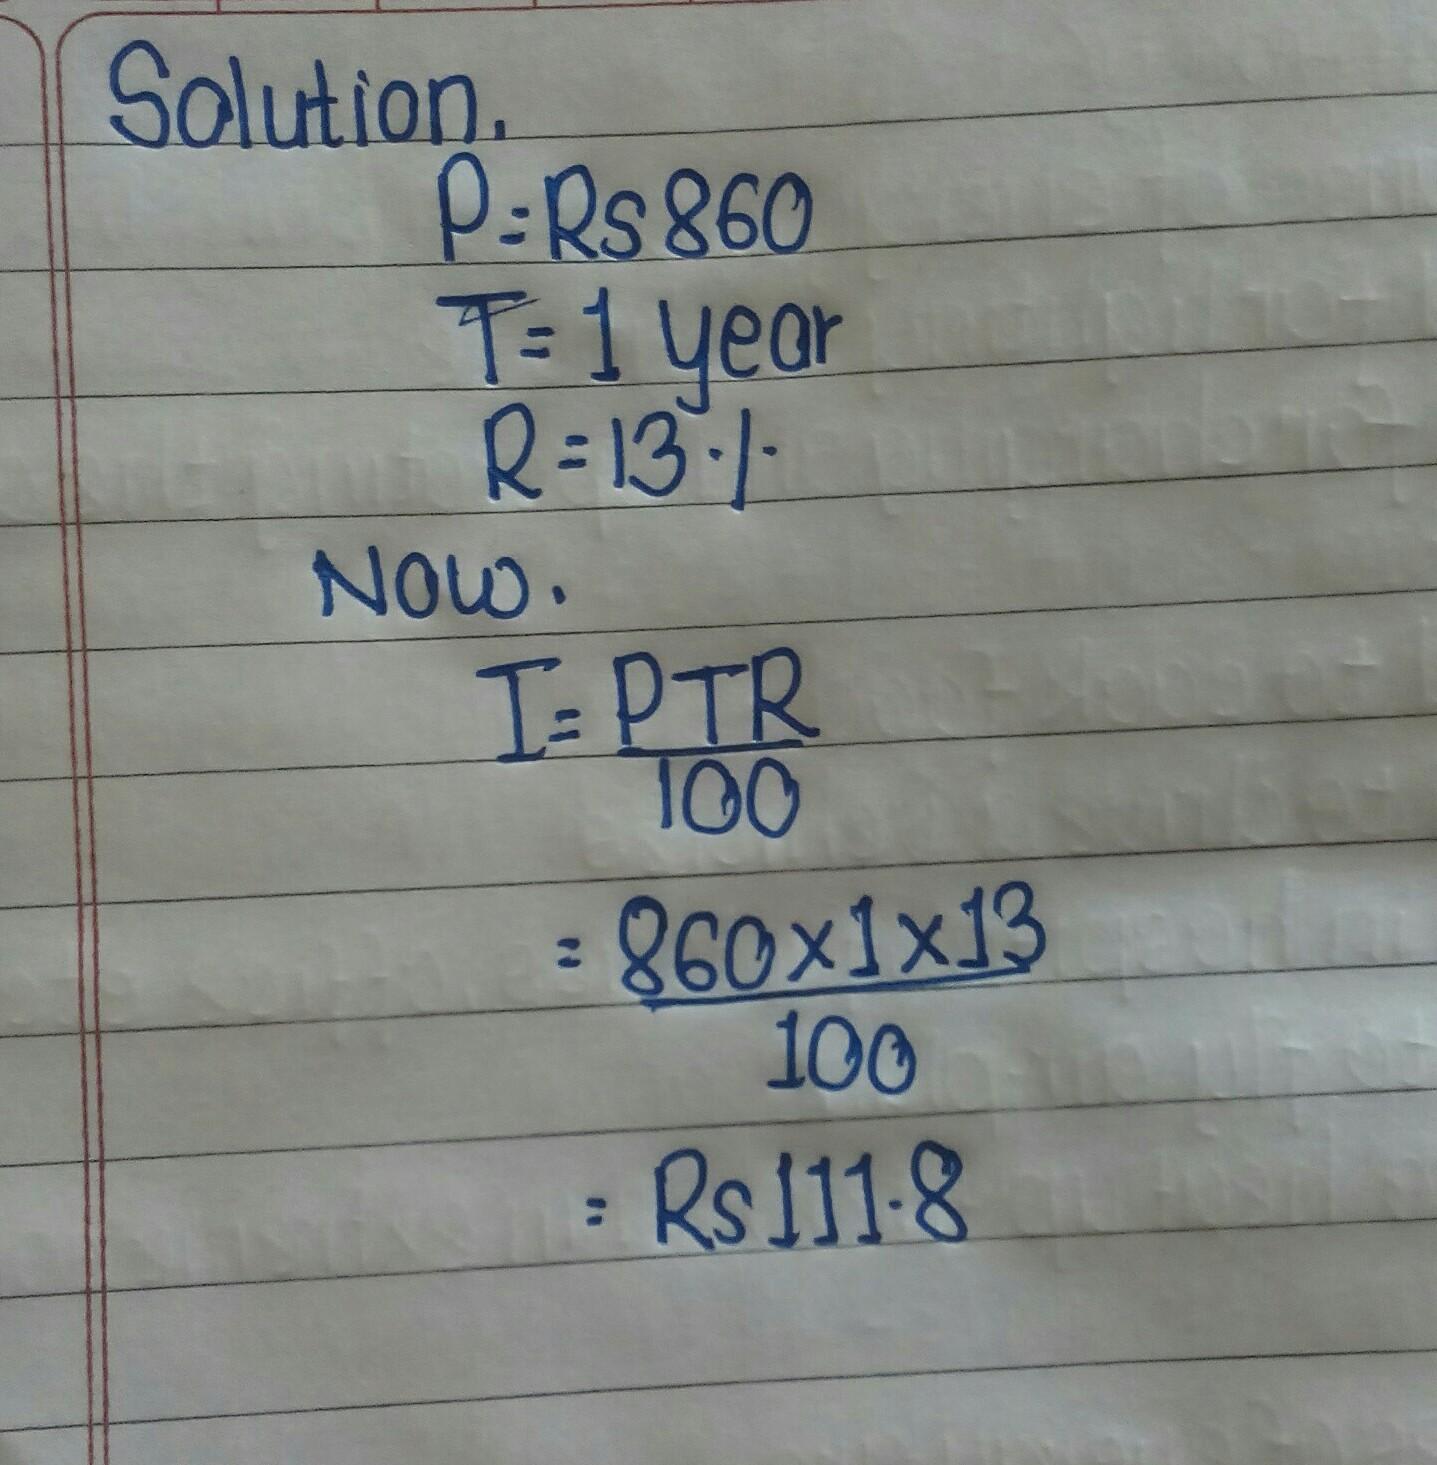 Solution.
P=Rs 860
T=1 year
R=13%
Now.
I=PTR
100
=860x1x13
100
=Rs 111.8